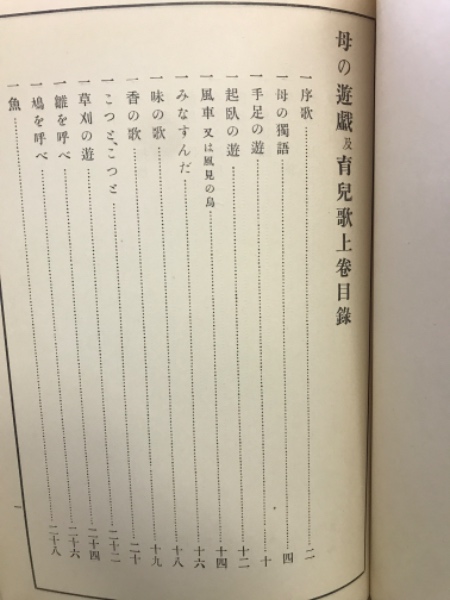 母の遊戲及育兒歌上卷目錄
一 序歌……二
一 母の獨語……四
一 手足の遊……十
一 起臥の遊……十二
一 風車 又は風見の鳥……十四
一 みなすんだ……十六
一 味の歌……十八
一 香の歌……十九
一 こつと、こつと……二十
一 草刈の遊……二十二
一 雛を呼べ……二十四
一 鳩を呼べ……二十六
一 魚……二十八
一